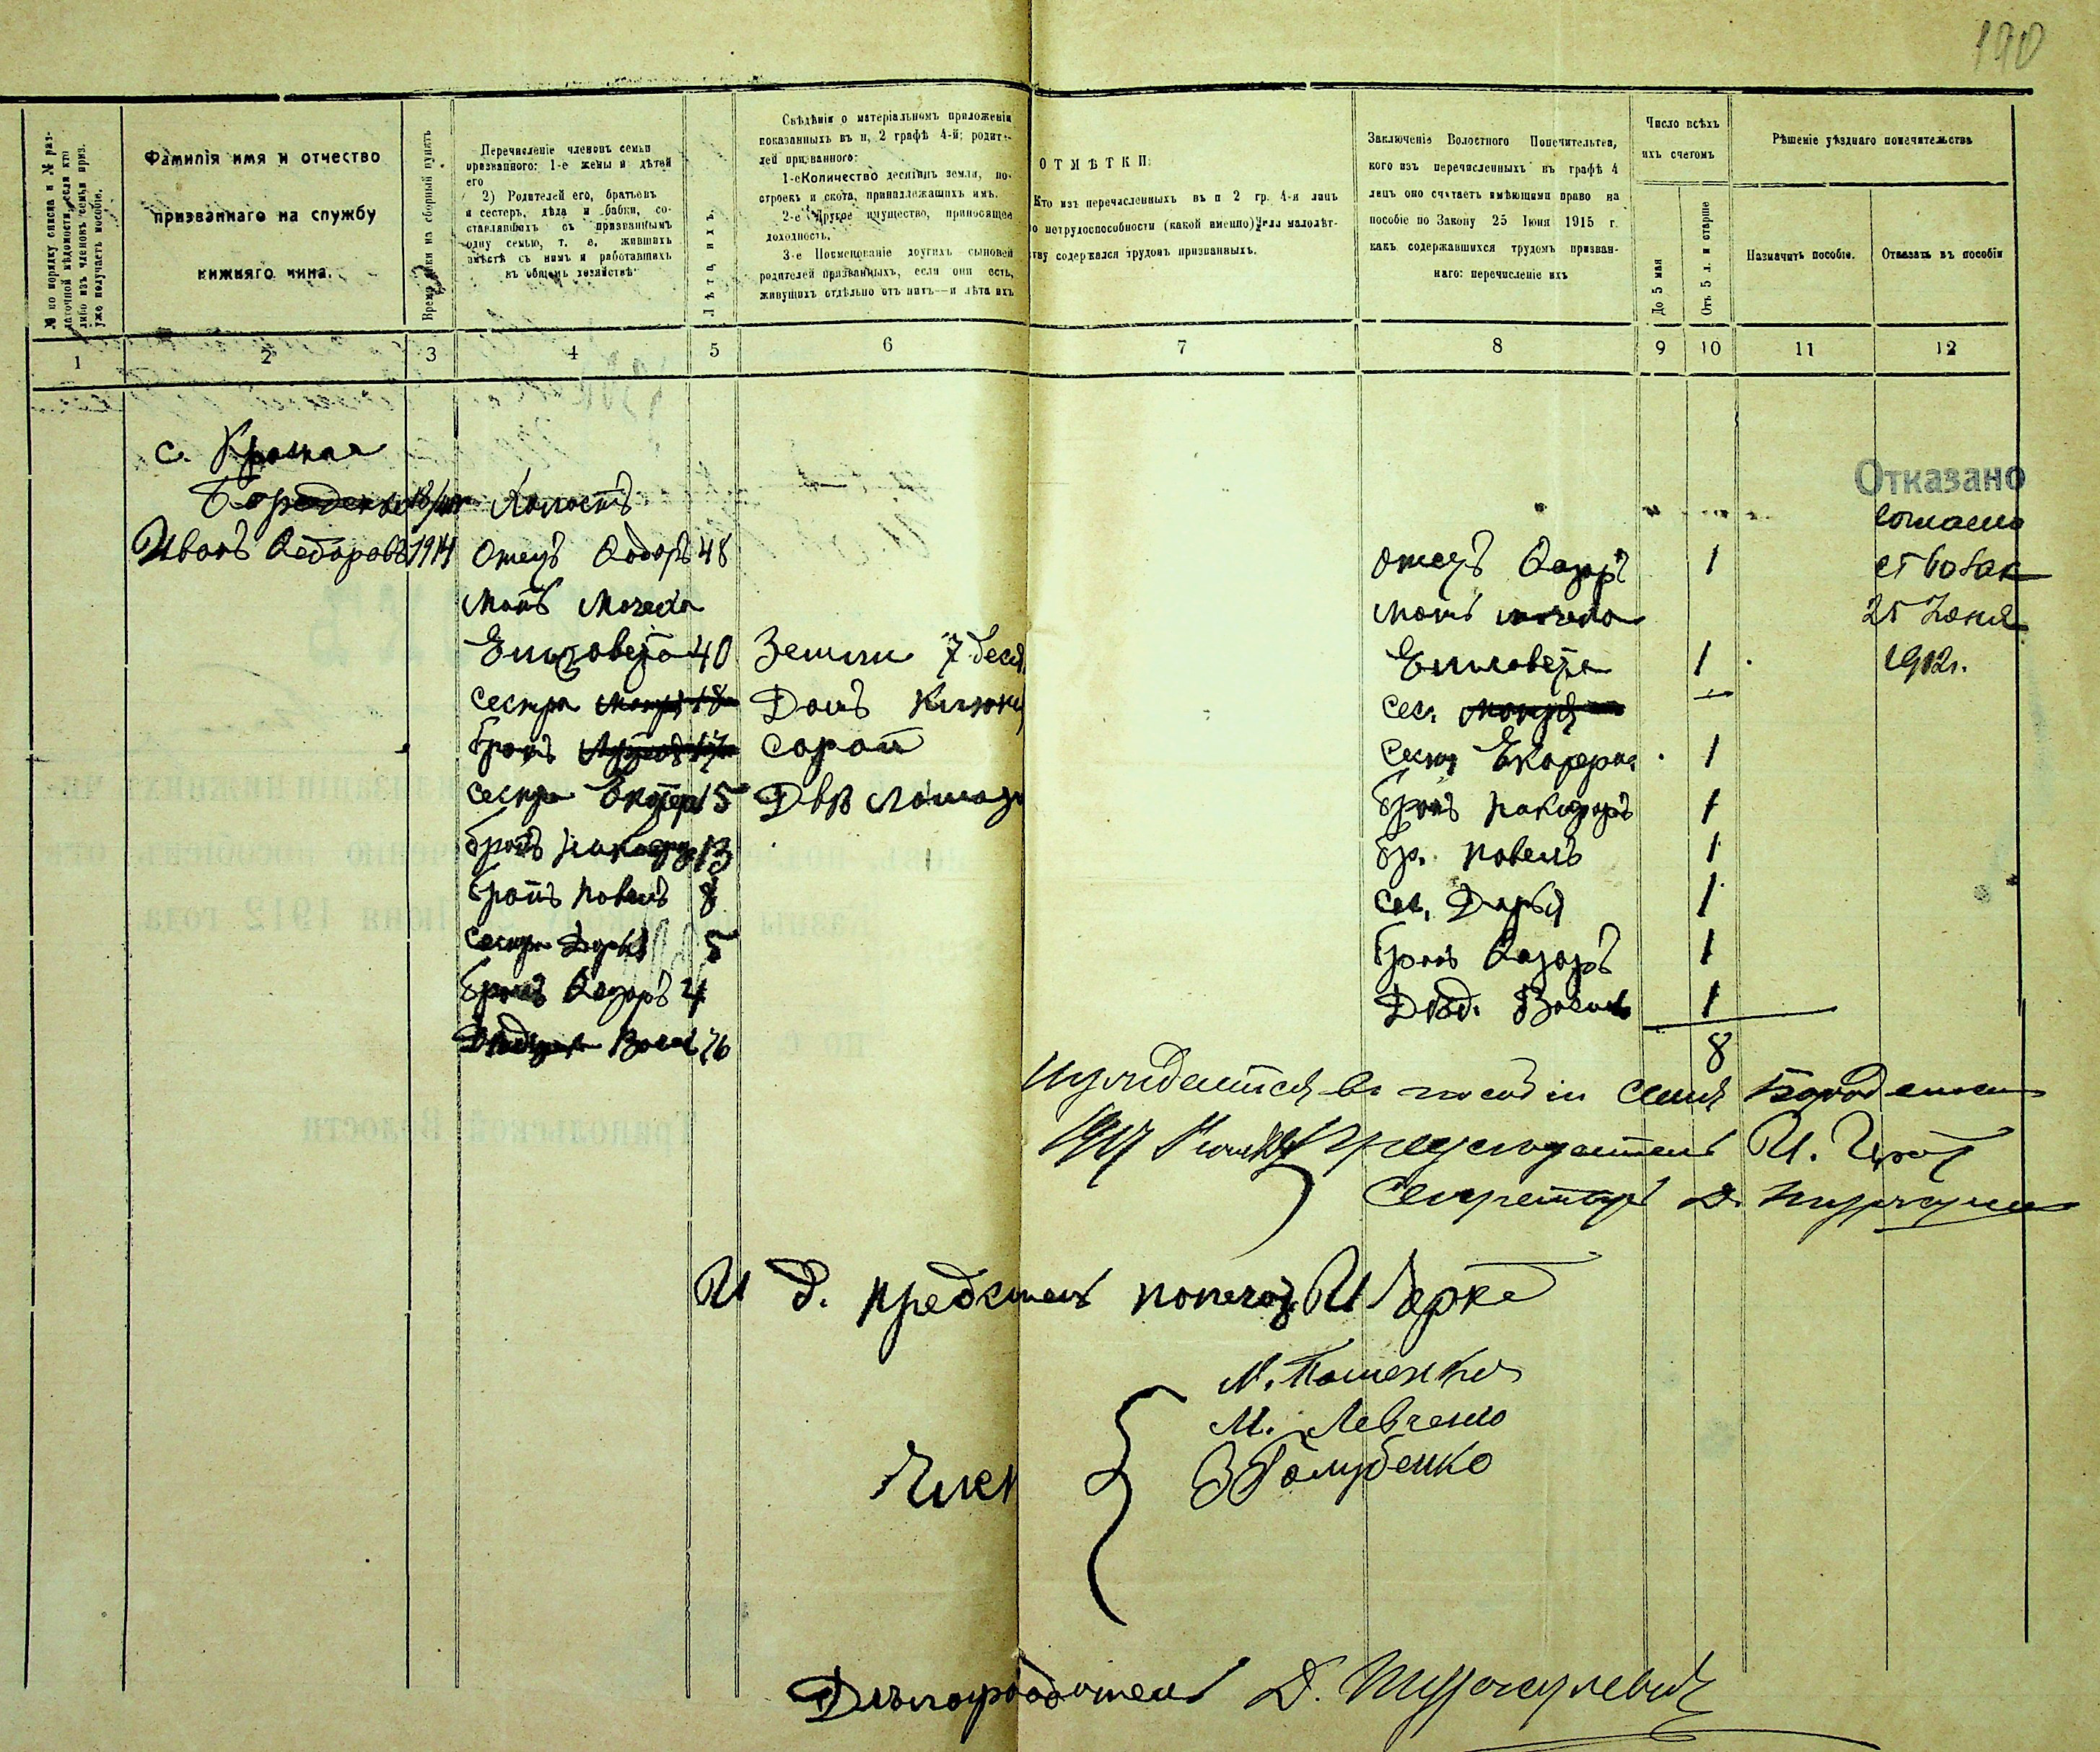 190
№ по порядку списка и № раз-
даточной вѣдомости, если кто
либо изъ членовъ семьи приз.
уже получаетъ пособіе.
Фамилія имя и отчество
призваннаго на службу
нижняго чина.
Время явки на сборный пунктъ
Перечисленіе членовъ семьи
призваннаго: 1-е жены и дѣтей
его
2) Родителей его, братьевъ
и сестеръ, дѣда и бабки, со-
ставлявшихъ съ призваннымъ
одну семью, т. е. жившихъ
вмѣстѣ съ нимъ и работавшихъ
въ общемъ хозяйствѣ
Лѣта, ихъ.
Свѣдѣнія о матеріальномъ приложеніи
показанныхъ въ п, 2 графѣ 4-й; родите-
лей призваннаго:
1-е Количество десятинъ земли, по-
строекъ и скота, принадлежащихъ имъ.
2-е Другое имущество, приносящее
доходность.
3-е Поименованіе другихъ сыновей
родителей призванныхъ, если они есть,
живущихъ отдѣльно отъ нихъ—и лѣта ихъ
ОТМѢТКИ:
Кто изъ перечисленныхъ въ п 2 гр. 4-я лицъ
о нетрудоспособности (какой именно) или малолѣт-
тву содержался трудомъ призванныхъ.
Заключеніе Волостного Попечительтва,
кого изъ перечисленныхъ въ графѣ 4
лицъ оно считаетъ имѣющими право на
пособіе по Закону 25 Іюня 1915 г.
какъ содержавшихся трудомъ призван-
наго: перечисленіе ихъ
Число всѣхъ
ихъ счетомъ
До 5 мая
Отъ 5 л. и старше
Рѣшеніе уѣзднаго попечительства
Назначить пособіе.
Отказать въ пособіи
1 2 3 4 5 6 7 8 9 10 11 12
с. Красная
Холостъ
Отказано
согласно
Иванъ Федоровъ 1914 Отецъ Федоръ 48 Отецъ Федоръ 1
ст
мать мачеха мать мачеха
25 Іюня
Елизовета 40 Земли 7 деся Елизовета 1
1912г.
сестра 18 Домъ сес.
братъ сарай сестр Екатерина 1
сестра Екатер 15 Двѣ лошади братъ Никифоръ 1
братъ Никифор 13 бр. Павелъ 1
братъ Павелъ 8 сес. Дарья 1
сестра Дарья 5 братъ Федоръ 1
братъ Федоръ 4 Дѣд. 1
Дѣдушка 76
8
Нуждается въ пособіи семья
1917 Предсѣдатель И.
Секретарь Д.
И д. предсѣдател попечит И
М. Левченко
Член З Голубенко
Дѣлопроизводитель Д.